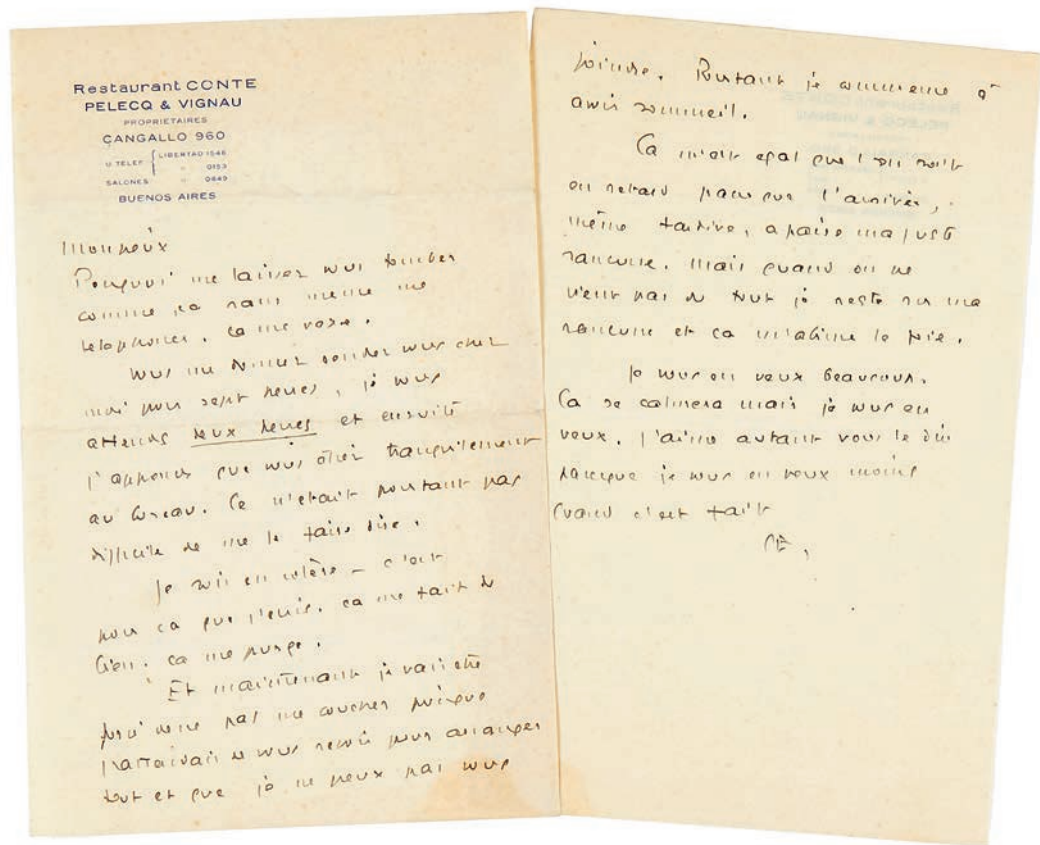 Restaurant CONTE
PELECQ & VIGNAU
PROPRIETAIRES
CANGALLO 960
U. TELEF. { LIBERTAD 1546
" 0153
SALONES " 0649
BUENOS AIRES
Pourquoi me laissez vous tomber
comme ça sans meme me
telephoner. ça me vexe.
Vous me donnez rendez vous chez
moi pour sept heures, je vous
attends deux heures et ensuite
j'apprends que vous étiez tranquilement
au bureau. Ce n'était pourtant pas
difficile de me le faire dire.
Je suis en colère – c'est
pour ça que j'écris. ça me fait du
bien. ça me purge.
Et maintenant je vais
pas me coucher puisque
de vous revoir pour arranger
tout et que je ne peux pas vous
joindre. Pourtant je commence à
avoir sommeil.
Ca m'est egal que l'on soit
en retard parce que l'arrivée,
même tardive, apaise ma juste
rancune. Mais quand on ne
vient pas du tout je reste sur ma
rancune et ça m'abime le foie.
Je vous en veux beaucoup.
Ca se calmera mais je vous en
veux. J'aime autant vous le dire
parceque je vous en veux moins
quand c'est fait